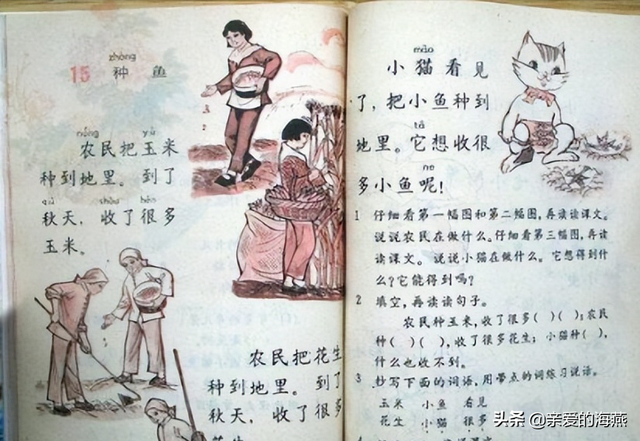 zhòng
15 种 鱼
nóng yù
农民把玉米
种到地里。到了
qiū shōu hěn
秋天，收了很多
玉米。
农民把花生
种到地里。到了
秋天，收了很多
māo
小猫看见
了，把小鱼种到
tā
地里。它想收很
ne
多小鱼呢！
1 仔细看第一幅图和第二幅图，再读读课文。
说说农民在做什么。仔细看第三幅图，再读
读课文。说说小猫在做什么。它想得到什
么？它能得到吗？
2 填空，再读读句子。
农民种玉米，收了很多( )( )；农民
种( )( )，收了很多花生；小猫种( )，
什么也收不到。
3 抄写下面的词语，用带点的词练习说话。
玉米 小鱼 看见
花生 小猫 很多
头条 @亲爱的海燕